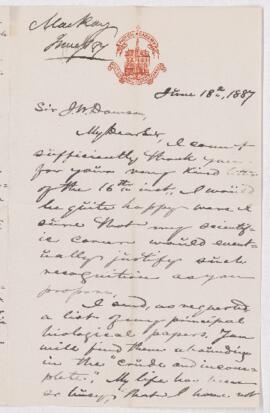 MacKay
June/87
June 18th, 1887
Sir J. W. Dawson,
My dear Sir, I cannot
sufficiently thank you
for your very kind letter
of the 16th inst. I would
be quite happy were I
sure that my scientif-
ic career would event-
ually justify such
recognition as you
propose.
I send, as requested
a list of my principal
biological papers. You
will find them abounding
in the "crude and incom-
plete". My life has been
so busy, that I have not